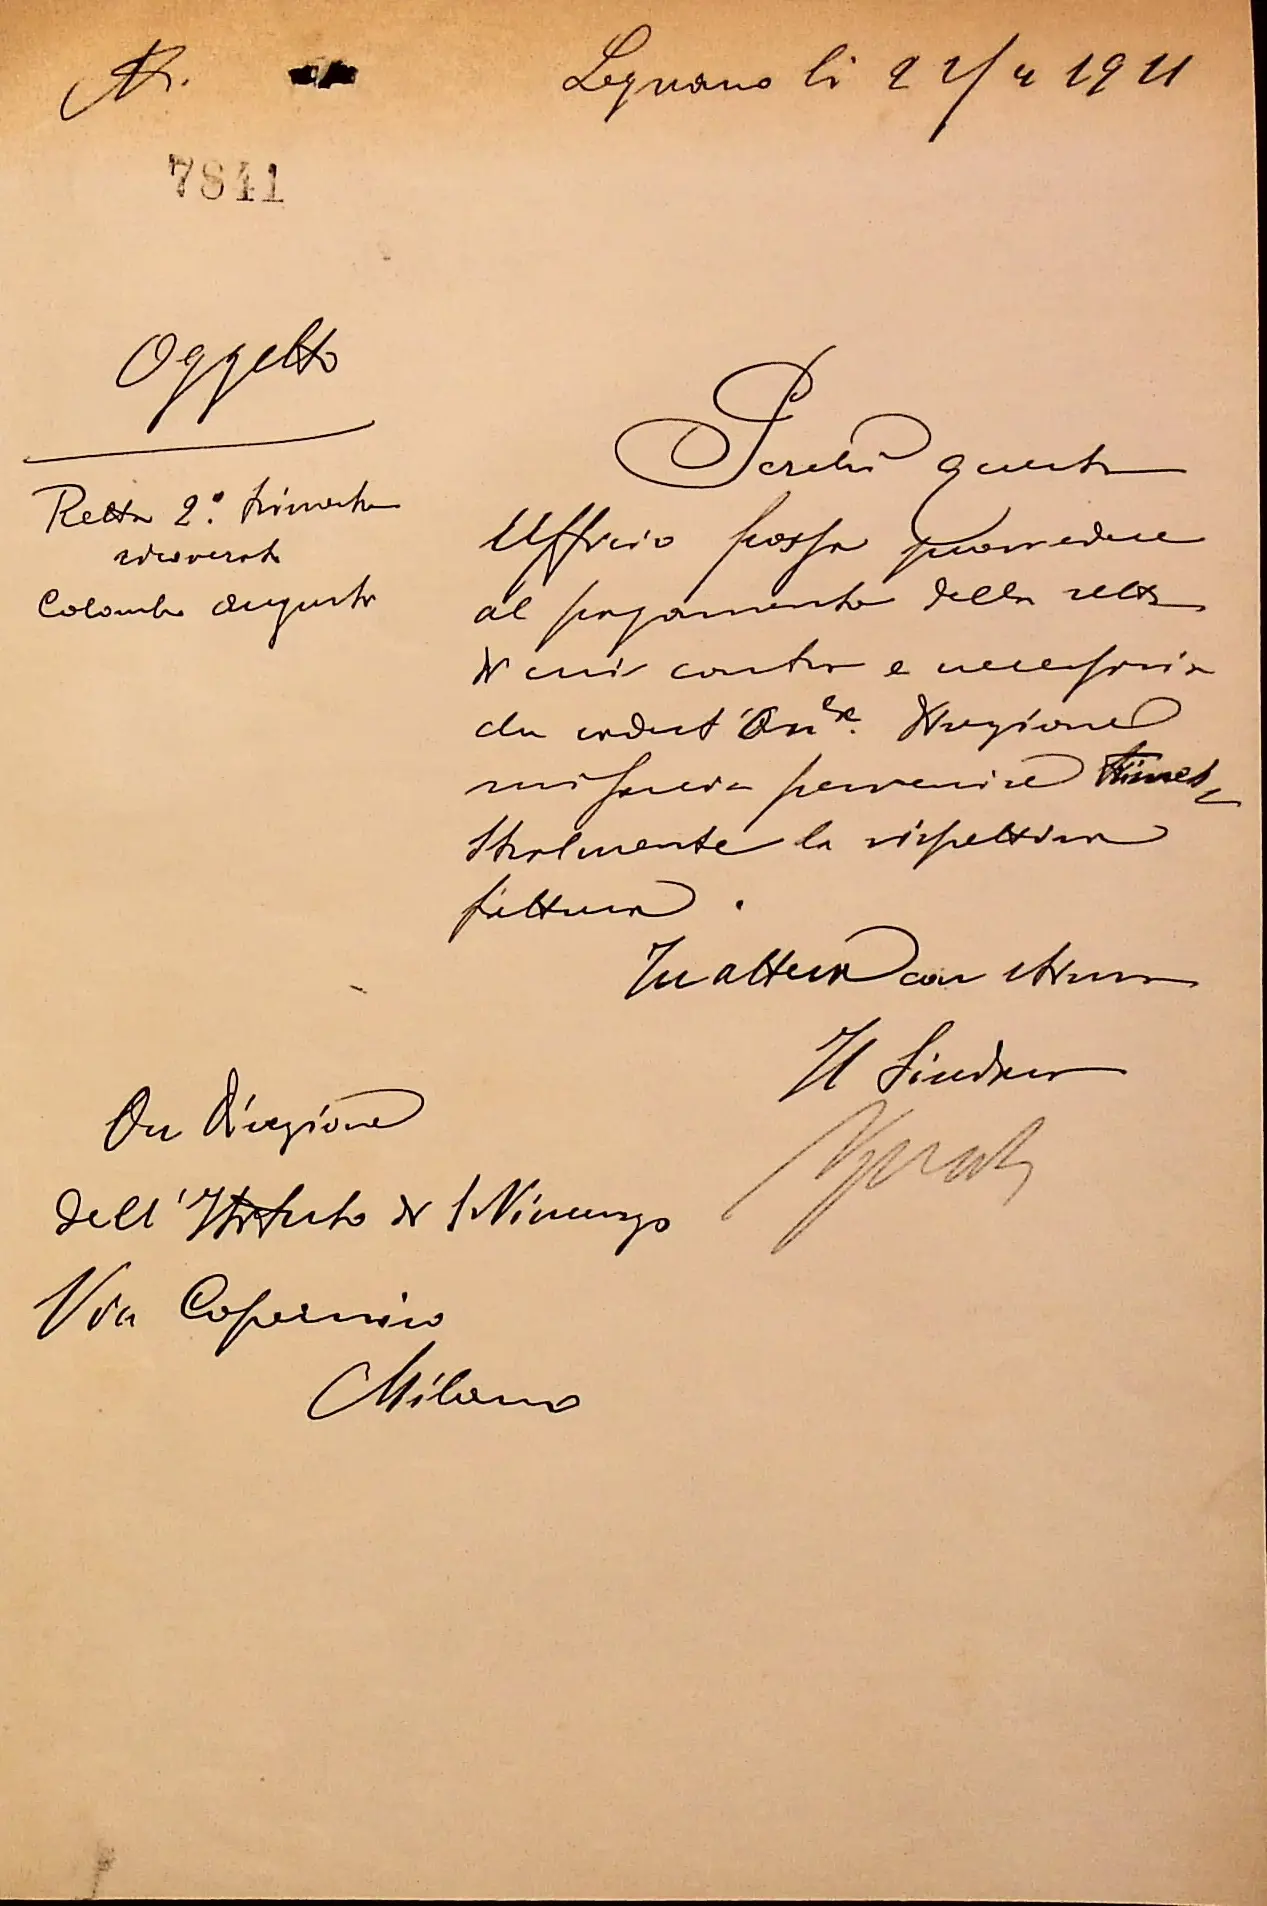 N.
Legnano li 22/4 1921
7841
Oggetto
Retta 2° trimestre
ricoverato
Colombo Augusto
Perchè questo
Ufficio possa provvedere
al pagamento della retta
di cui contro e necessario
che codest'On.
Direzione
mi faccia pervenire trimes
tralmente la rispettiva
fattura.
In attesa con stima
Il Sindaco
On Direzione
dell'Istituto di S Vincenzo
Via Copernico
Milano